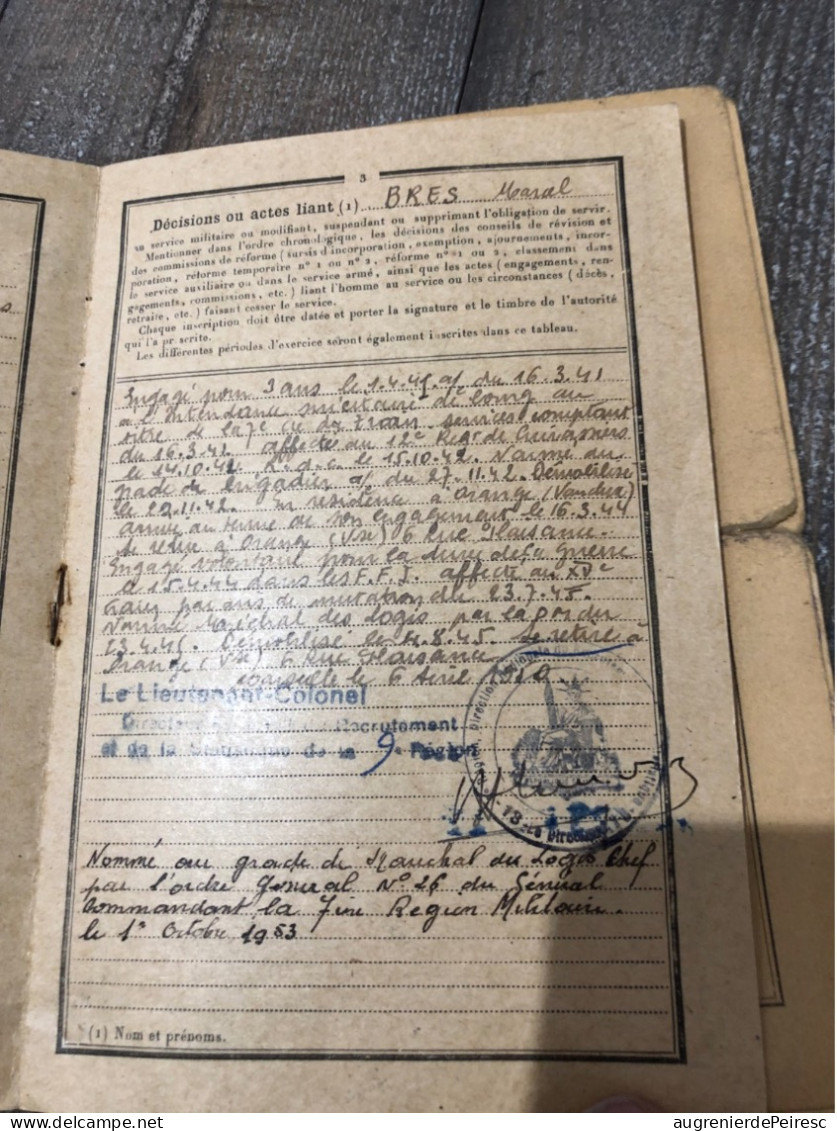 3
Décisions ou actes liant (1) BRES Marcel
au service militaire ou modifiant, suspendant ou supprimant l'obligation de servir.
Mentionner dans l'ordre chronologique, les décisions des conseils de révision et
des commissions de réforme (sursis d'incorporation, exemption, ajournements, incor-
poration, réforme temporaire n° 1 ou n° 2, réforme n° 1 ou 2, classement dans
le service auxiliaire ou dans le service armé, ainsi que les actes (engagements, ren-
gagements, commissions, etc.) liant l'homme au service ou les circonstances (décès,
retraite, etc.) faisant cesser le service.
Chaque inscription doit être datée et porter la signature et le timbre de l'autorité
qui l'a prescrite.
Les différentes périodes d'exercice seront également inscrites dans ce tableau.
Engagé pour 3 ans le 1.4.41 a/ du 16.3.41
a l'Intendance militaire de bourg au
titre de la 7e Cie du train services comptant
du 16.3.41 affecté au 12e Regt de Cuirassiers
le 14.10.42. le 15.10.42. Nommé au
grade de brigadier a/ du 27.11.42. Démobilisé
le 29.11.42. résidence a Orange (Vaucluse)
au terme de son engagement le 16.3.44
Se retire à Orange (Vse) 6 Rue Plaisance.
Engagé volontaire pour la durée de la guerre
le 15.4.44 dans les F.F.I. affecté au XVe
par de mutation du 23.7.45.
Nommé Maréchal des Logis par du
23.4.45. Démobilisé le 4.8.45. Se retire à
Orange (Vse) 6 Rue Plaisance
Marseille le 6 Avril
Le Lieutenant-Colonel
Directeur Recrutement
et de la Statistique de la 9e Région
Nommé au grade de Maréchal des Logis Chef
par l'ordre général N° 26 du Général
Commandant la 7ème Région Militaire.
le 1er Octobre 1953
(1) Nom et prénoms.
augrenierdePeiresc